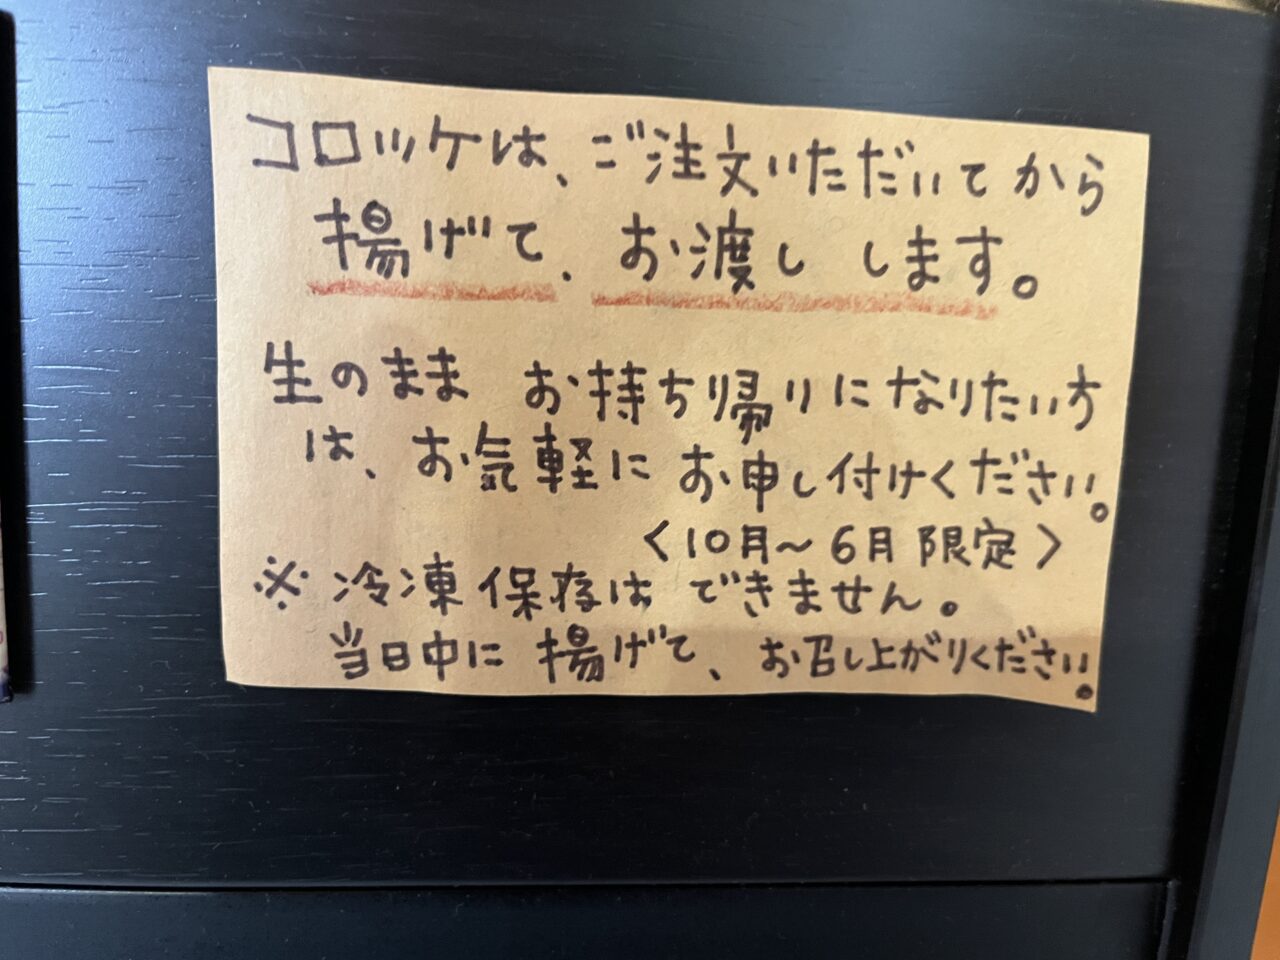 コロッケは、ご注文いただいてから
揚げて、お渡し します。
生のまま お持ち帰りになりたい方
は、お気軽に お申し付けください。
〈10月〜6月 限定〉
※ 冷凍保存は できません。
当日中に 揚げて、お召し上がりください。